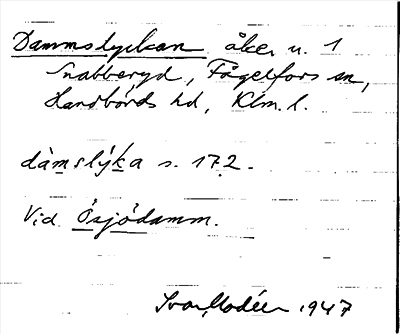 Dammslyckan åker n. 1
Snabberyd, Fågelfors sn,
Handbörds hd, Klm. l.
dàm̥slýk̥a s. 172.
Vid Ösjödamm.
Ivar Modéer 1947